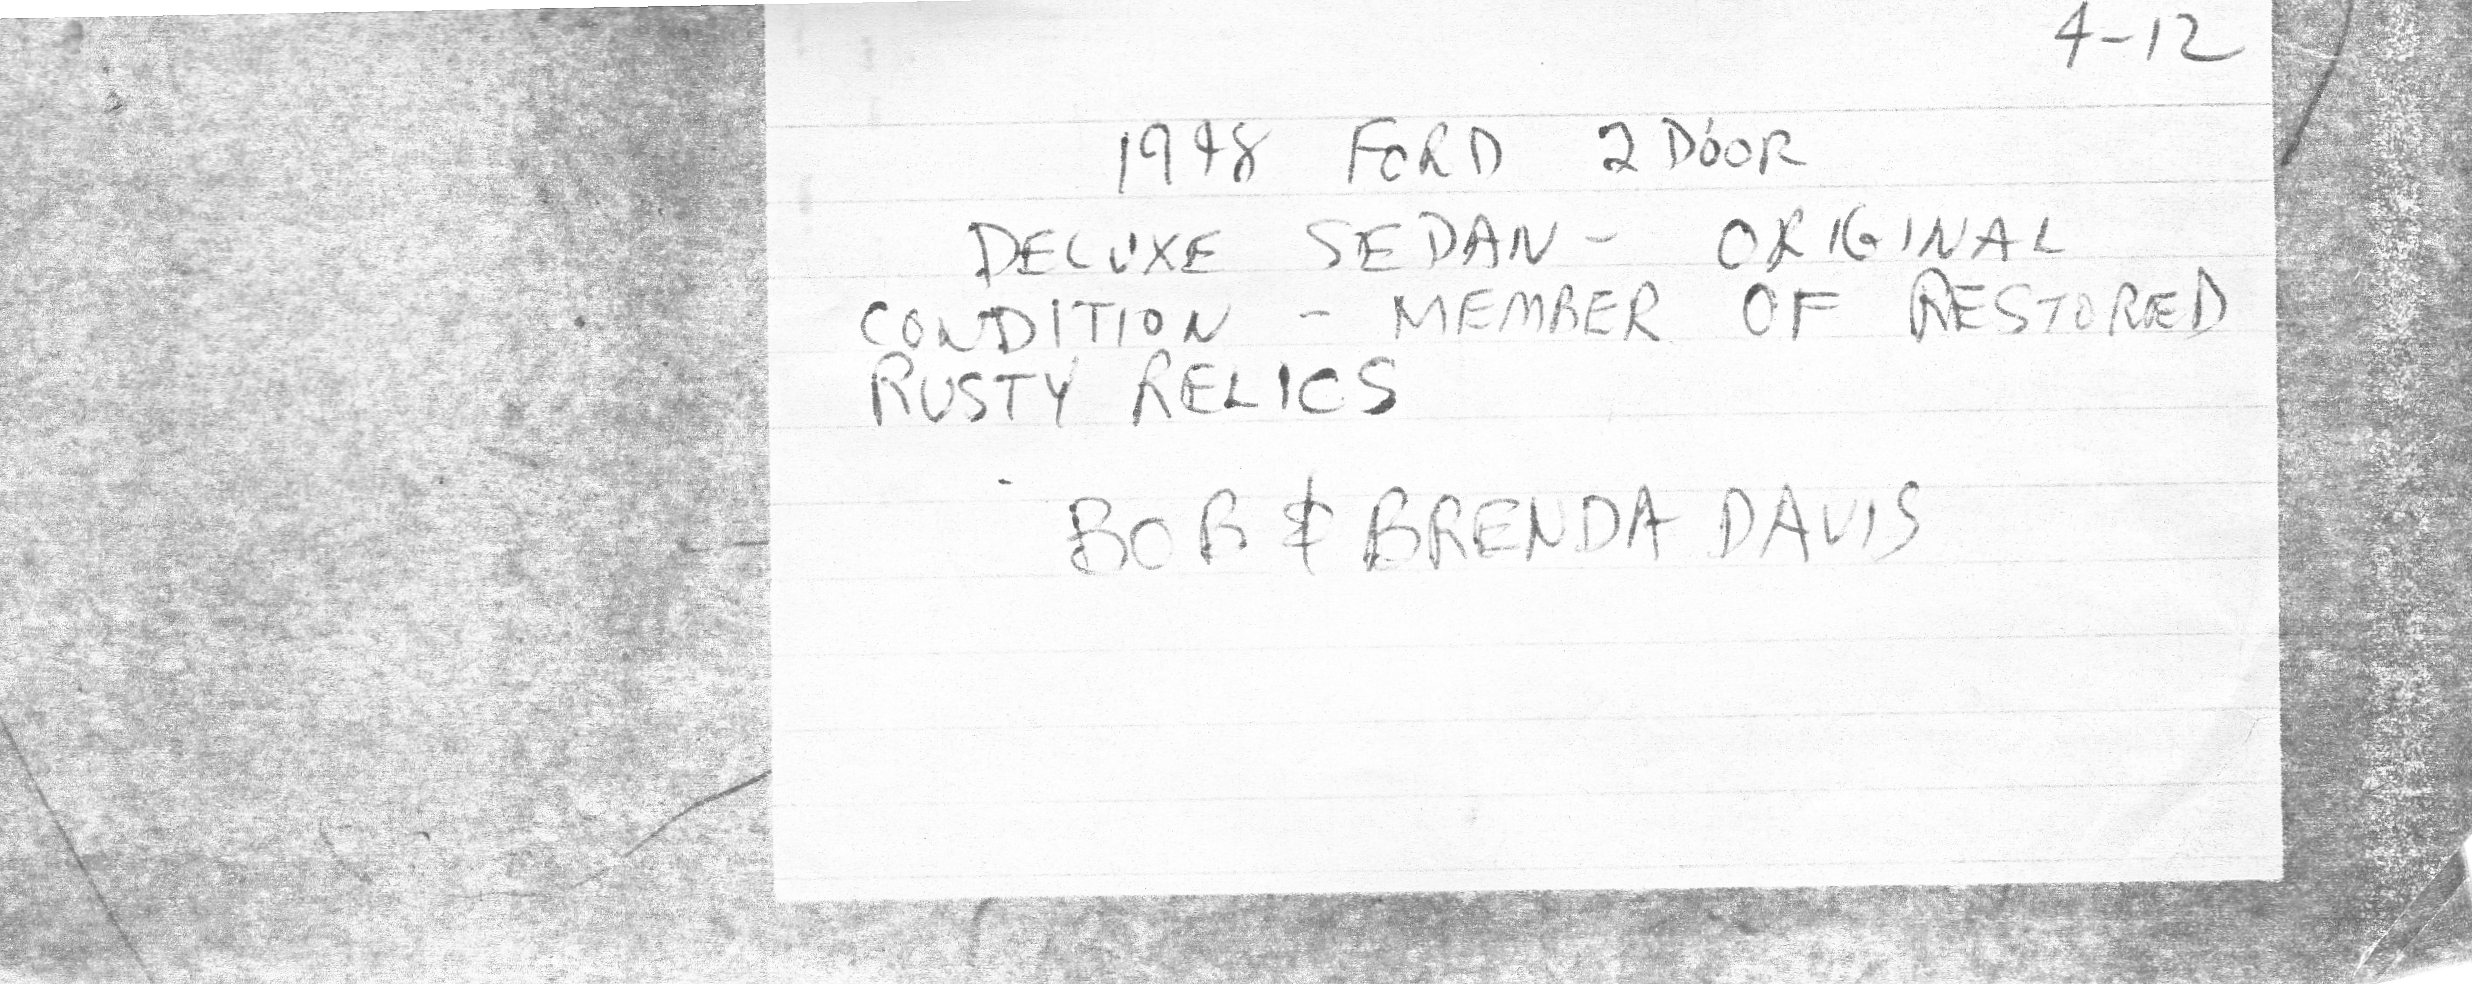 4-12
1948 FORD 2 DOOR
DELUXE SEDAN - ORIGINAL
CONDITION - MEMBER OF RESTORED
RUSTY RELICS
BOB & BRENDA DAVIS